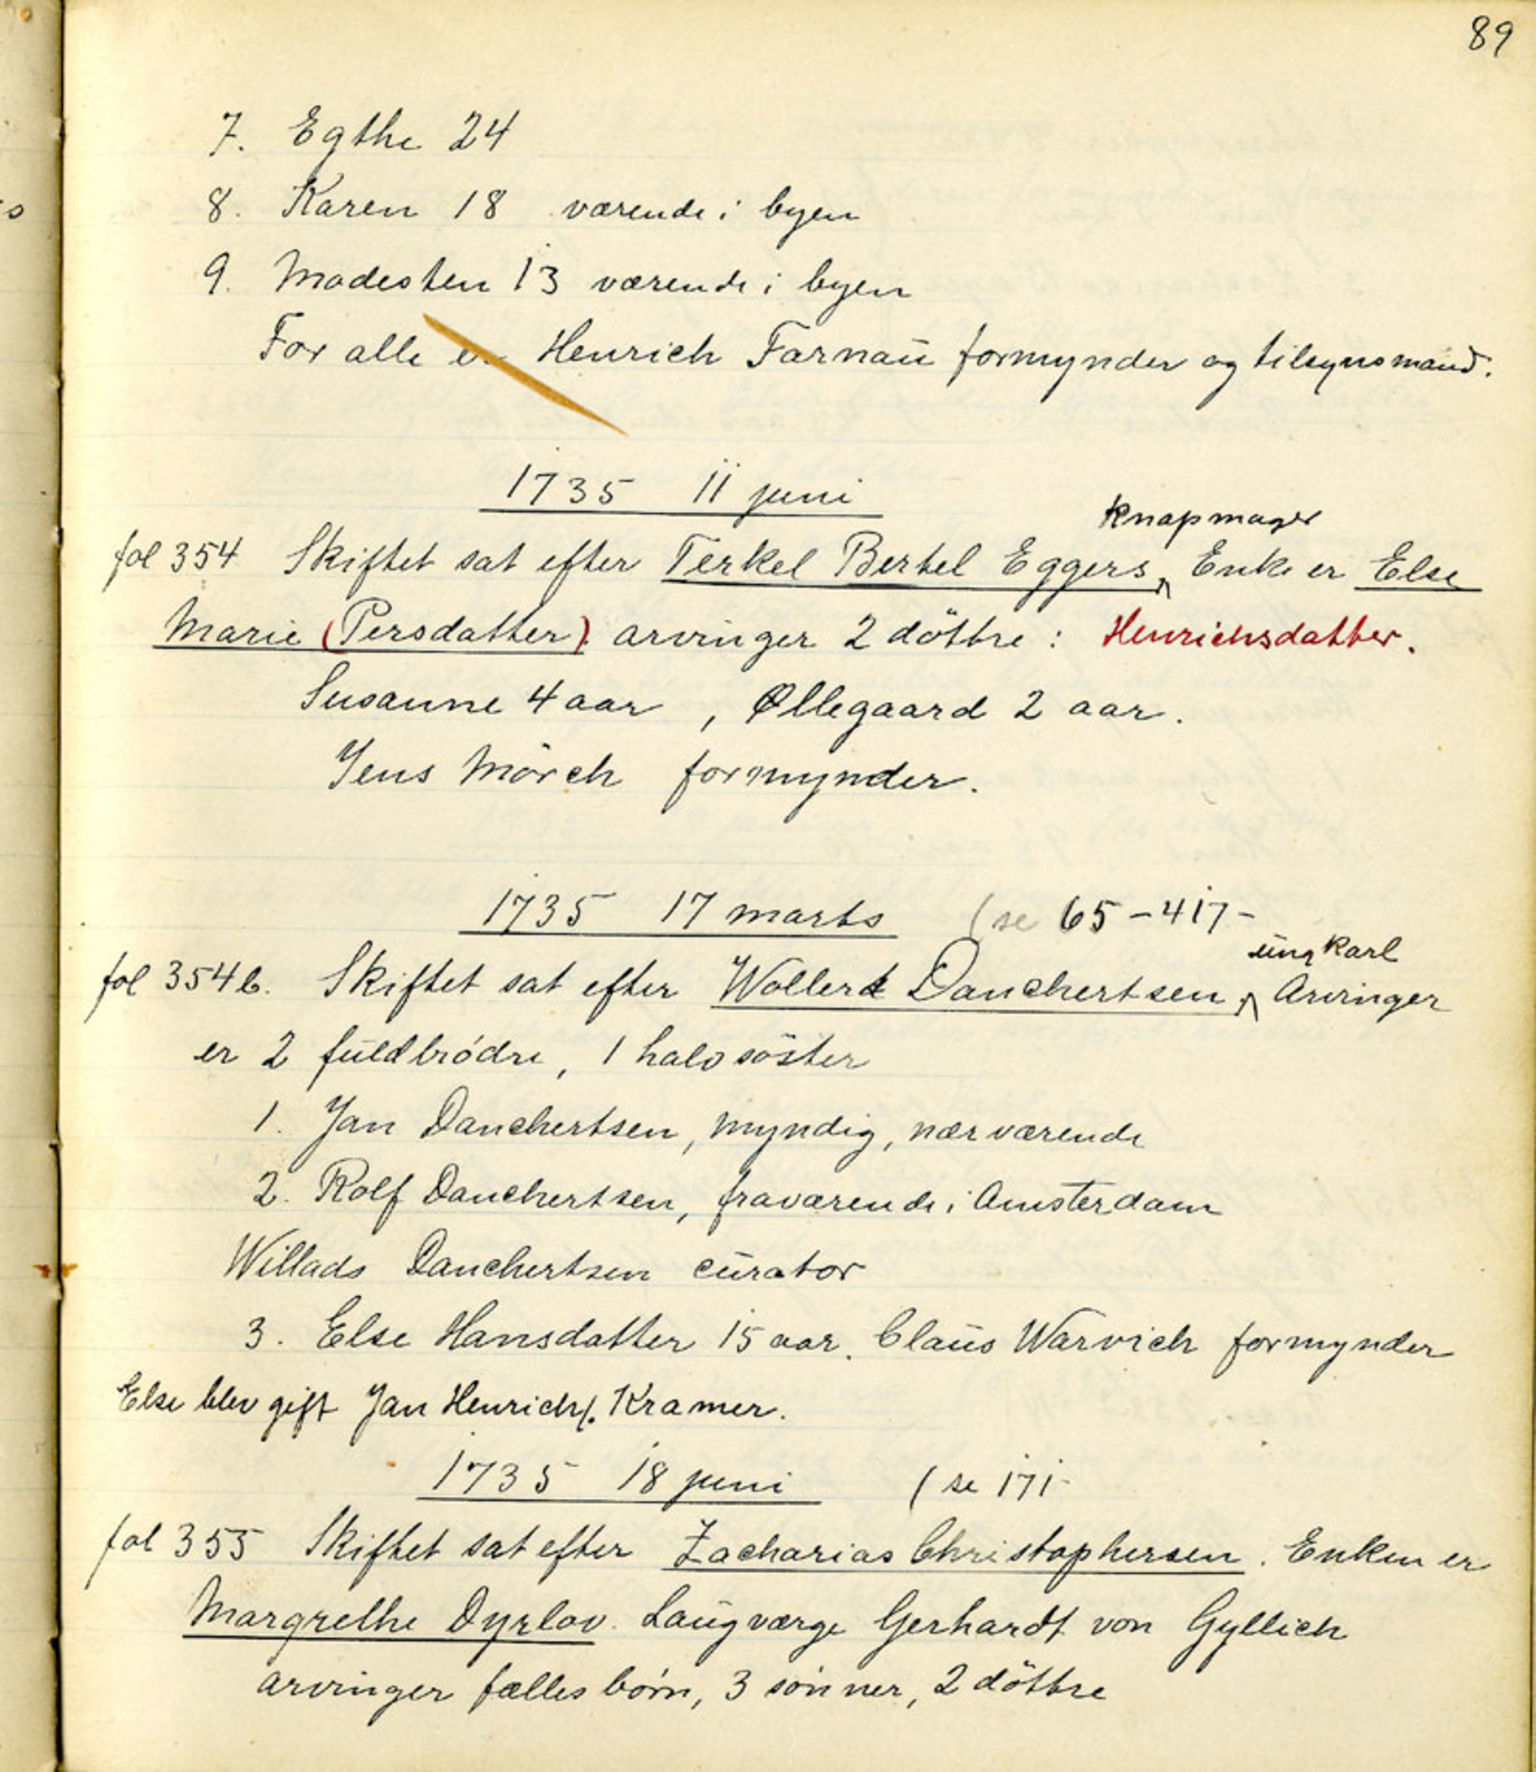 89
7. Egthe 24
8. Karen 18 værende i byen
9. Modesten 13 værende i byen
For alle er Henrich Farnau formynder og tilsynsmand.
1735 11 juni
Knapmager
fol 354 Skiftet sat efter Terkel Bertel Eggers, Enke er Else
Marie (Persdatter) arvinger 2 döttre : Henrichsdatter.
Susanne 4 aar , Øllegaard 2 aar.
Jens Mörch formynder.
1735 17 marts (se 65-417-
ung Karl
fol 354 b. Skiftet sat efter Wollert Danchertsen, Arvinger
er 2 fuldbrödre, 1 halvsöster
1. Jan Danchertsen, myndig, nærværende
2. Rolf Danchertsen, fraværende i Amsterdam
Willads Danchertsen curator
3. Else Hansdatter 15 aar. Claus Warvich formynder
Else blev gift Jan Henrich Kramer.
1735 18 juni (se 171-
fol 355 Skiftet sat efter Zacharias Christophersen. Enken er
Margrethe Dyrlov. Laugværge Gerhardt von Gyllich
arvinger fælles börn, 3 sönner, 2 döttre